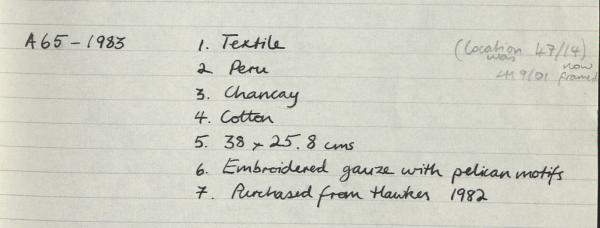 A65-1983
1. Textile
2 Peru
3. Chancay
4. Cotton
5. 38 x 25.8 cms
6. Embroidered gauze with pelican motifs
7. Purchased from Hawker 1982
(Location 47/14)
was
now
framed